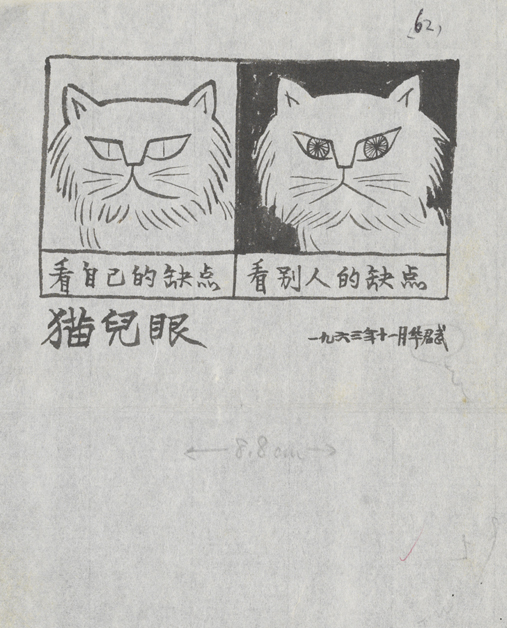 62)
看自己的缺点
看别人的缺点
猫兒眼
一九六三年十一月华君武
8.8cm